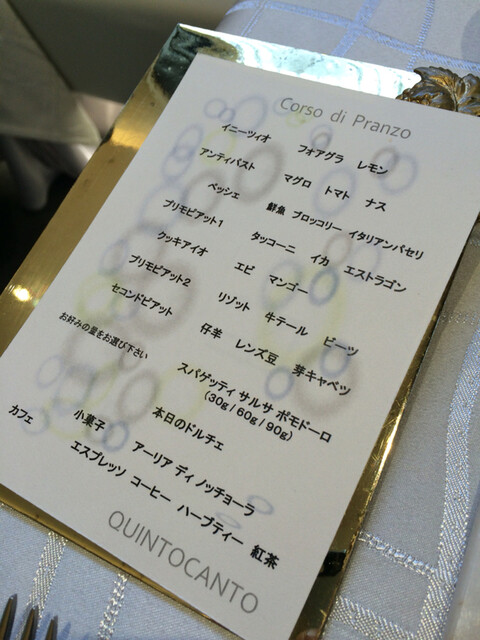 Corso di Pranzo
イニーツィオ フォアグラ レモン
アンティパスト マグロ トマト ナス
ペッシェ 鮮魚 ブロッコリー イタリアンパセリ
プリモピアット1 タッコーニ イカ エストラゴン
クッキアイオ エビ マンゴー
プリモピアット2 リゾット 牛テール ビーツ
セコンドピアット 仔羊 レンズ豆 芽キャベツ
お好みの量をお選び下さい スパゲッティ サルサ ポモドーロ
(30g / 60g / 90g)
本日のドルチェ
小菓子 アーリア ディ ノッチョーラ
カフェ エスプレッソ コーヒー ハーブティー 紅茶
QUINTOCANTO